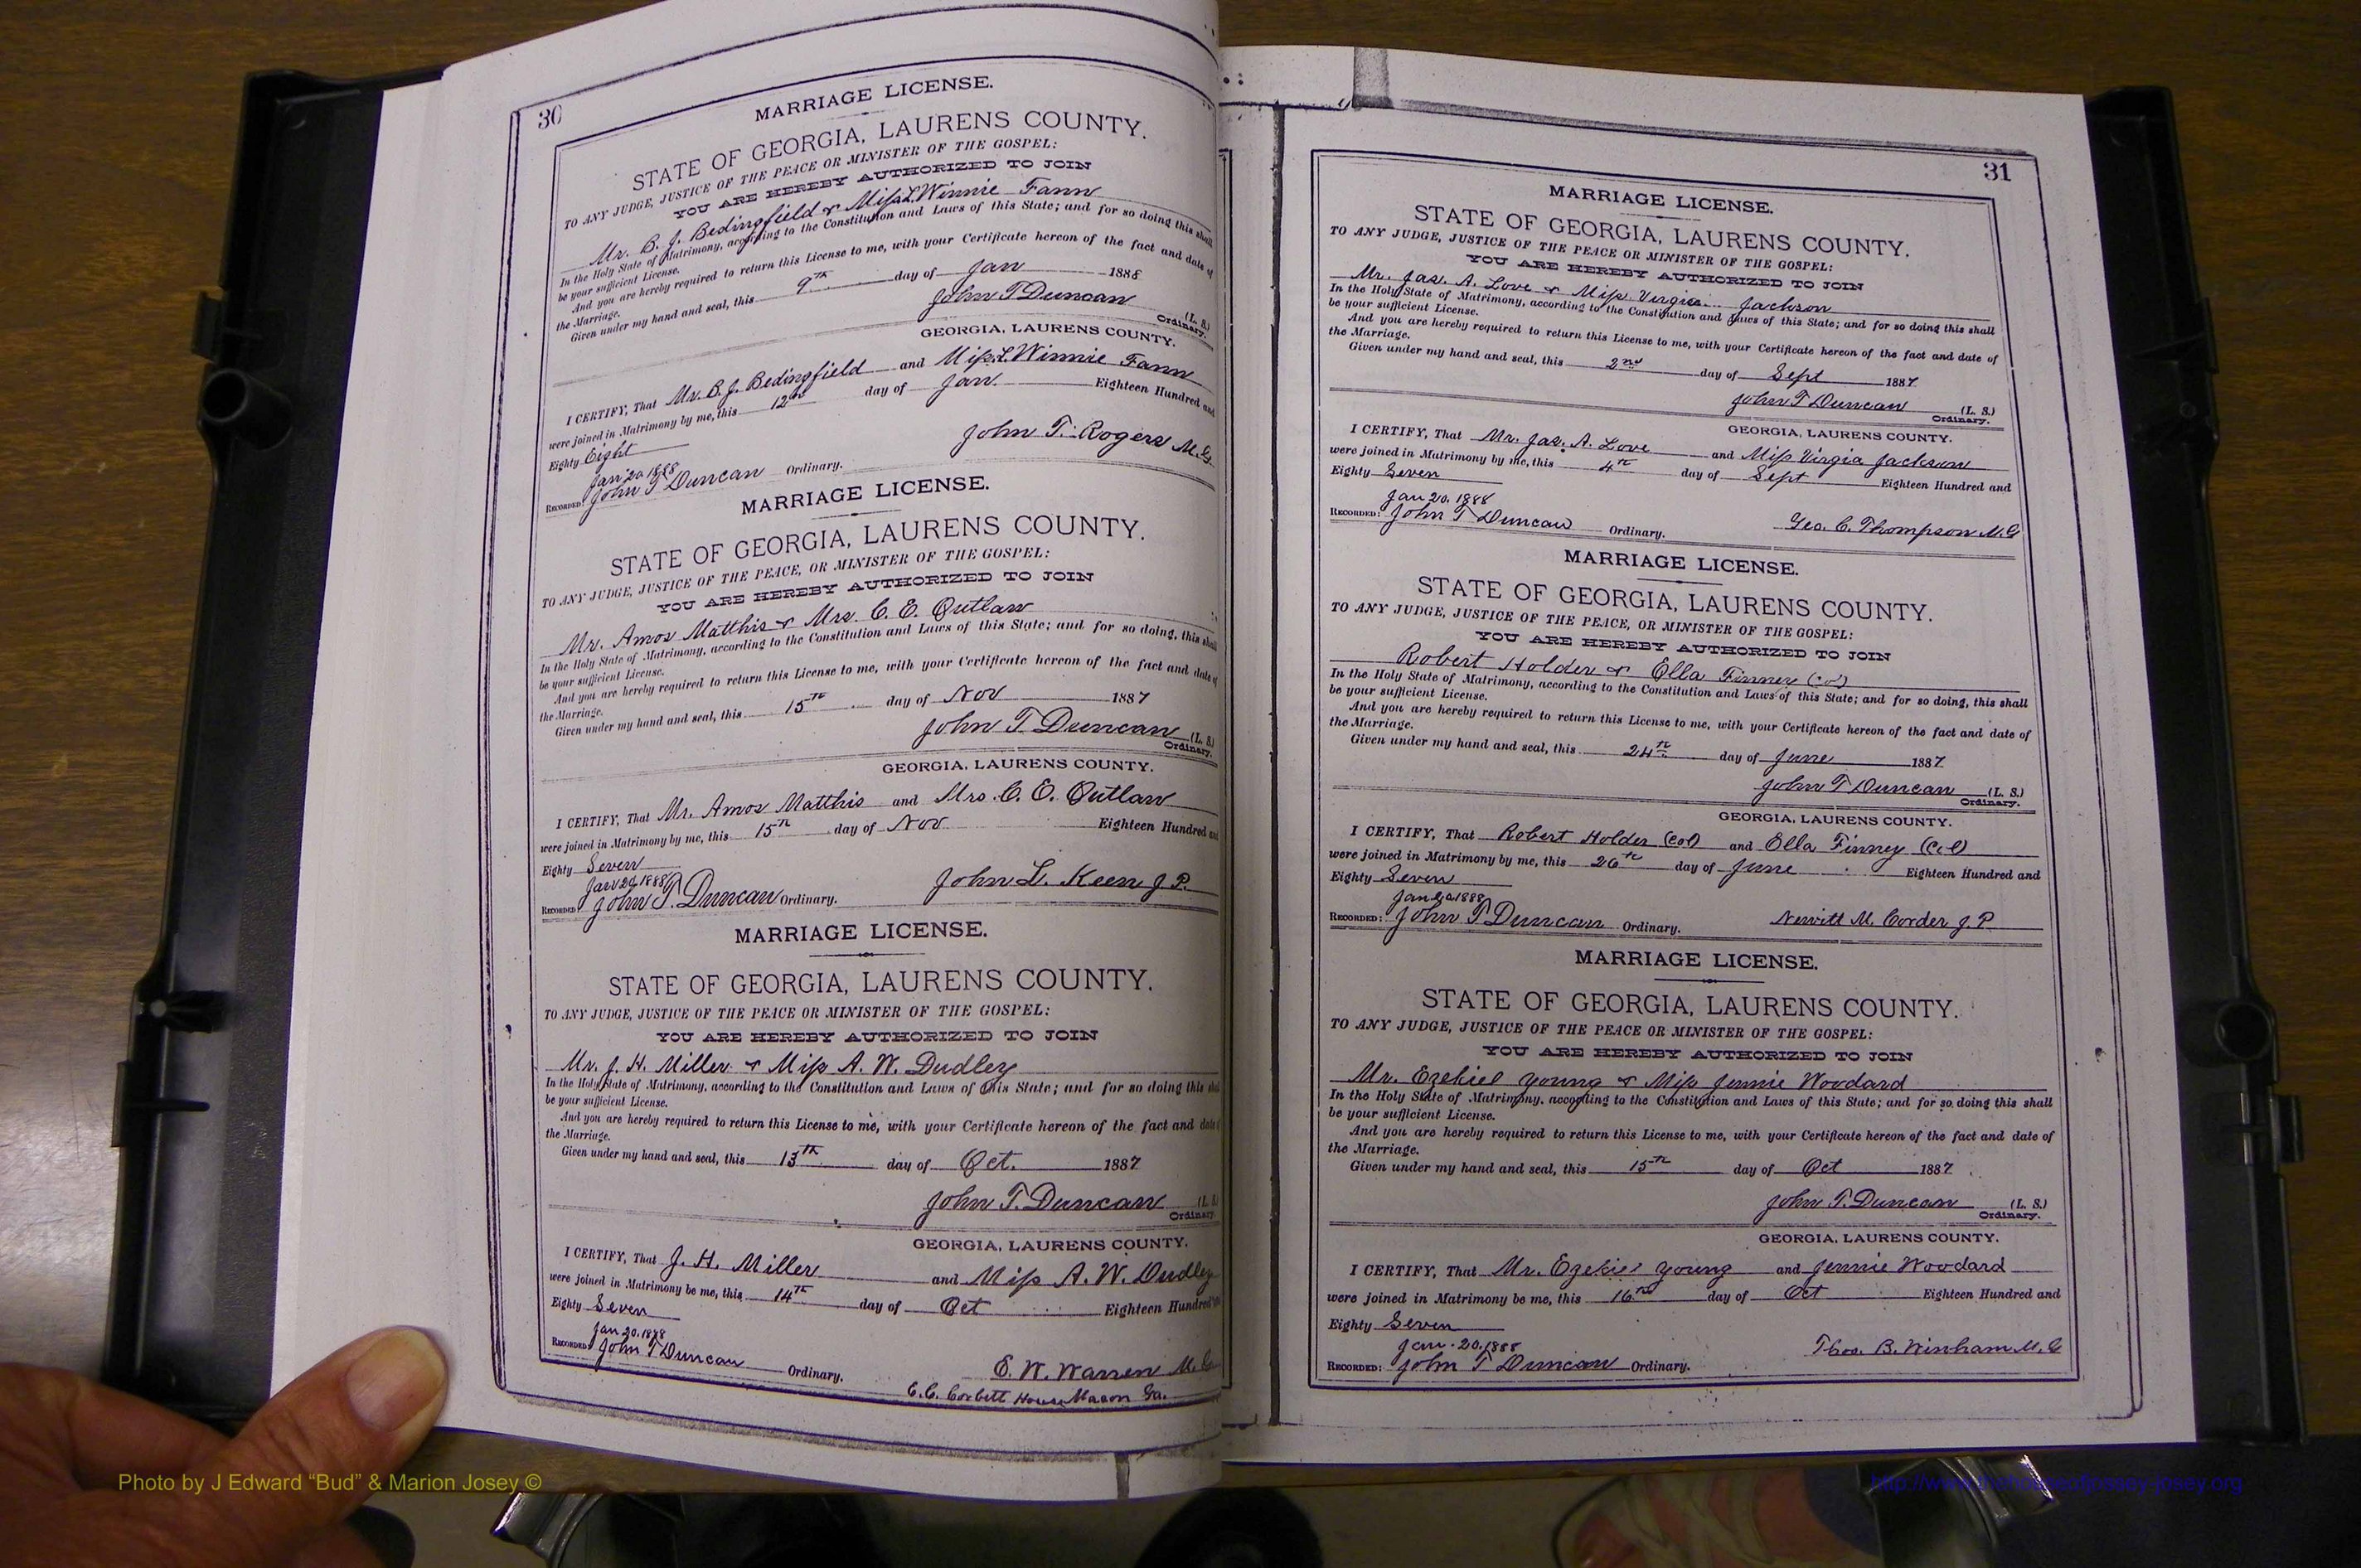 30
MARRIAGE LICENSE.
STATE OF GEORGIA, LAURENS COUNTY.
TO ANY JUDGE, JUSTICE OF THE PEACE OR MINISTER OF THE GOSPEL:
YOU ARE HEREBY AUTHORIZED TO JOIN
Mr. B. J. Bedingfield & Miss L. Winnie Fann
In the Holy State of Matrimony, according to the Constitution and Laws of this State; and for so doing this shall
be your sufficient License.
And you are hereby required to return this License to me, with your Certificate hereon of the fact and date of
the Marriage.
Given under my hand and seal, this 9th day of Jan 1888
John T Duncan (L. S.)
Ordinary.
GEORGIA, LAURENS COUNTY.
I CERTIFY, That Mr. B. J. Bedingfield and Miss L. Winnie Fann
were joined in Matrimony by me, this 12th day of Jan. Eighteen Hundred and
Eighty Eight
John T. Rogers M.G.
Jan 20 1888
RECORDED: John T Duncan Ordinary.
MARRIAGE LICENSE.
STATE OF GEORGIA, LAURENS COUNTY.
TO ANY JUDGE, JUSTICE OF THE PEACE, OR MINISTER OF THE GOSPEL:
YOU ARE HEREBY AUTHORIZED TO JOIN
Mr. Amos Matthis & Mrs. C. E. Outlaw
In the Holy State of Matrimony, according to the Constitution and Laws of this State; and for so doing, this shall
be your sufficient License.
And you are hereby required to return this License to me, with your Certificate hereon of the fact and date of
the Marriage.
Given under my hand and seal, this 15th day of Nov 1887
John T Duncan (L. S.)
Ordinary.
GEORGIA, LAURENS COUNTY.
I CERTIFY, That Mr. Amos Matthis and Mrs. C. E. Outlaw
were joined in Matrimony by me, this 15th day of Nov. Eighteen Hundred and
Eighty Seven
Jan 20 1888
RECORDED: John T. Duncan Ordinary. John L. Keen J. P.
MARRIAGE LICENSE.
STATE OF GEORGIA, LAURENS COUNTY.
TO ANY JUDGE, JUSTICE OF THE PEACE OR MINISTER OF THE GOSPEL:
YOU ARE HEREBY AUTHORIZED TO JOIN
Mr. J. H. Miller & Miss A. W. Dudley
In the Holy State of Matrimony, according to the Constitution and Laws of this State; and for so doing this shall
be your sufficient License.
And you are hereby required to return this License to me, with your Certificate hereon of the fact and date
the Marriage.
Given under my hand and seal, this 13th day of Oct. 1887
John T. Duncan (L. S.)
Ordinary.
GEORGIA, LAURENS COUNTY.
I CERTIFY, That J. H. Miller and Miss A. W. Dudley
were joined in Matrimony be me, this 14th day of Oct Eighteen Hundred
Eighty Seven
Jan 20. 1888
RECORDED: John T Duncan Ordinary. E. W. Warren M. G.
E. C. Corbett House Macon Ga.
31
MARRIAGE LICENSE.
STATE OF GEORGIA, LAURENS COUNTY.
TO ANY JUDGE, JUSTICE OF THE PEACE OR MINISTER OF THE GOSPEL:
YOU ARE HEREBY AUTHORIZED TO JOIN
Mr. Jas. A. Love & Miss Virgia Jackson
In the Holy State of Matrimony, according to the Constitution and Laws of this State; and for so doing this shall
be your sufficient License.
And you are hereby required to return this License to me, with your Certificate hereon of the fact and date of
the Marriage.
Given under my hand and seal, this 2nd day of Sept 1887.
John T Duncan (L. S.)
Ordinary.
GEORGIA, LAURENS COUNTY.
I CERTIFY, That Mr. Jas. A. Love and Miss Virgia Jackson
were joined in Matrimony by me, this 4th day of Sept Eighteen Hundred and
Eighty Seven
Jan 20. 1888
RECORDED: John T Duncan Ordinary. Geo. C. Thompson M.G
MARRIAGE LICENSE.
STATE OF GEORGIA, LAURENS COUNTY.
TO ANY JUDGE, JUSTICE OF THE PEACE, OR MINISTER OF THE GOSPEL:
YOU ARE HEREBY AUTHORIZED TO JOIN
Robert Holder & Ella Finney (col)
In the Holy State of Matrimony, according to the Constitution and Laws of this State; and for so doing, this shall
be your sufficient License.
And you are hereby required to return this License to me, with your Certificate hereon of the fact and date of
the Marriage.
Given under my hand and seal, this 24th day of June 1887
John T Duncan (L. S.)
Ordinary.
GEORGIA, LAURENS COUNTY.
I CERTIFY, That Robert Holder (col) and Ella Finney (Col)
were joined in Matrimony by me, this 26th day of June Eighteen Hundred and
Eighty Seven
Jan 20 1888
RECORDED: John T Duncan Ordinary. Newitt M. Corder J. P.
MARRIAGE LICENSE.
STATE OF GEORGIA, LAURENS COUNTY.
TO ANY JUDGE, JUSTICE OF THE PEACE OR MINISTER OF THE GOSPEL:
YOU ARE HEREBY AUTHORIZED TO JOIN
Mr. Ezekiel Young & Miss Jennie Woodard
In the Holy State of Matrimony, according to the Constitution and Laws of this State; and for so doing this shall
be your sufficient License.
And you are hereby required to return this License to me, with your Certificate hereon of the fact and date of
the Marriage.
Given under my hand and seal, this 15th day of Oct 1887.
John T. Duncan (L. S.)
Ordinary.
GEORGIA, LAURENS COUNTY.
I CERTIFY, That Mr. Ezekiel Young and Jennie Woodard
were joined in Matrimony be me, this 16th day of Oct Eighteen Hundred and
Eighty Seven
Jan. 20. 1888
RECORDED: John T Duncan Ordinary. Thos. B. Winham M. G
Photo by J Edward “Bud” & Marion Josey ©
http://www.thehouseofjossey-josey.org